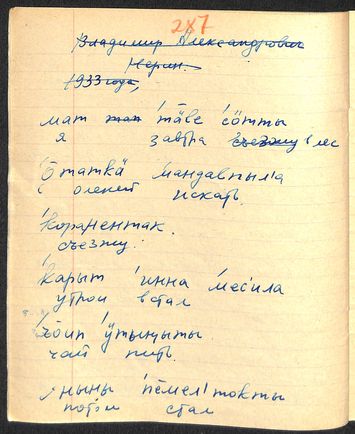 247
Владимир Александрович
Нерин.
1933 года,
мат мат тӓве сӧтты
я завтра съезжу в лес
ӧтаткӓ мандавпыла
с оленей искать.
коранентак.
съезжу.
карыт инна месила
утром встал
чӧип ӱтыӊыты
чай пить.
ныны пемел токты
потом стал